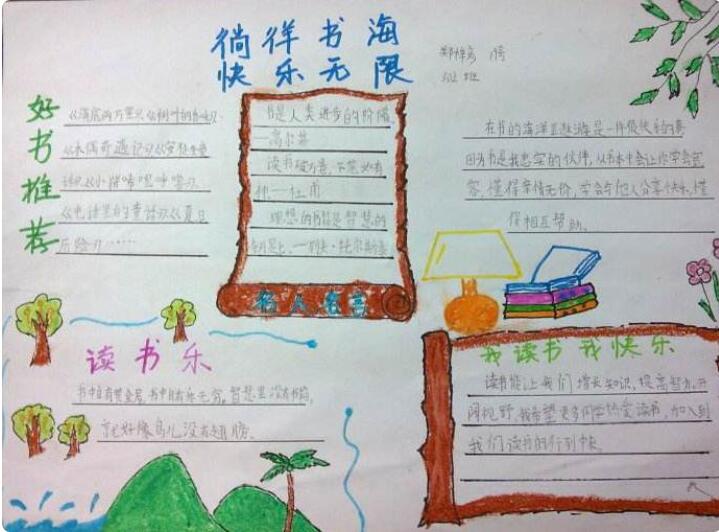 徜徉书海
快乐无限
好书推荐
《海底两万里》《树叶的香味》
《木偶奇遇记》《安徒生童
话》《小猪唏哩呼噜》
《电话里的童话》《夏日
历险》……
书是人类进步的阶梯
—高尔基
读书破万卷，下笔如有
神—杜甫
理想的书籍是智慧的
钥匙—列夫·托尔斯泰
名人名言
在书的海洋里遨游是一件很快乐的事
因为书是我忠实的伙伴，从书本中会让你学会宽
容，懂得亲情无价，学会与他人分享快乐，懂
得相互帮助。
读书乐
书中自有黄金屋，书中自有乐无穷，智慧里没有书籍，
就好像鸟儿没有翅膀。
我读书我快乐
读书能让我们增长知识，提高智力，开
阔视野，我希望更多同学热爱读书，加入到
我们读书的行列中来。